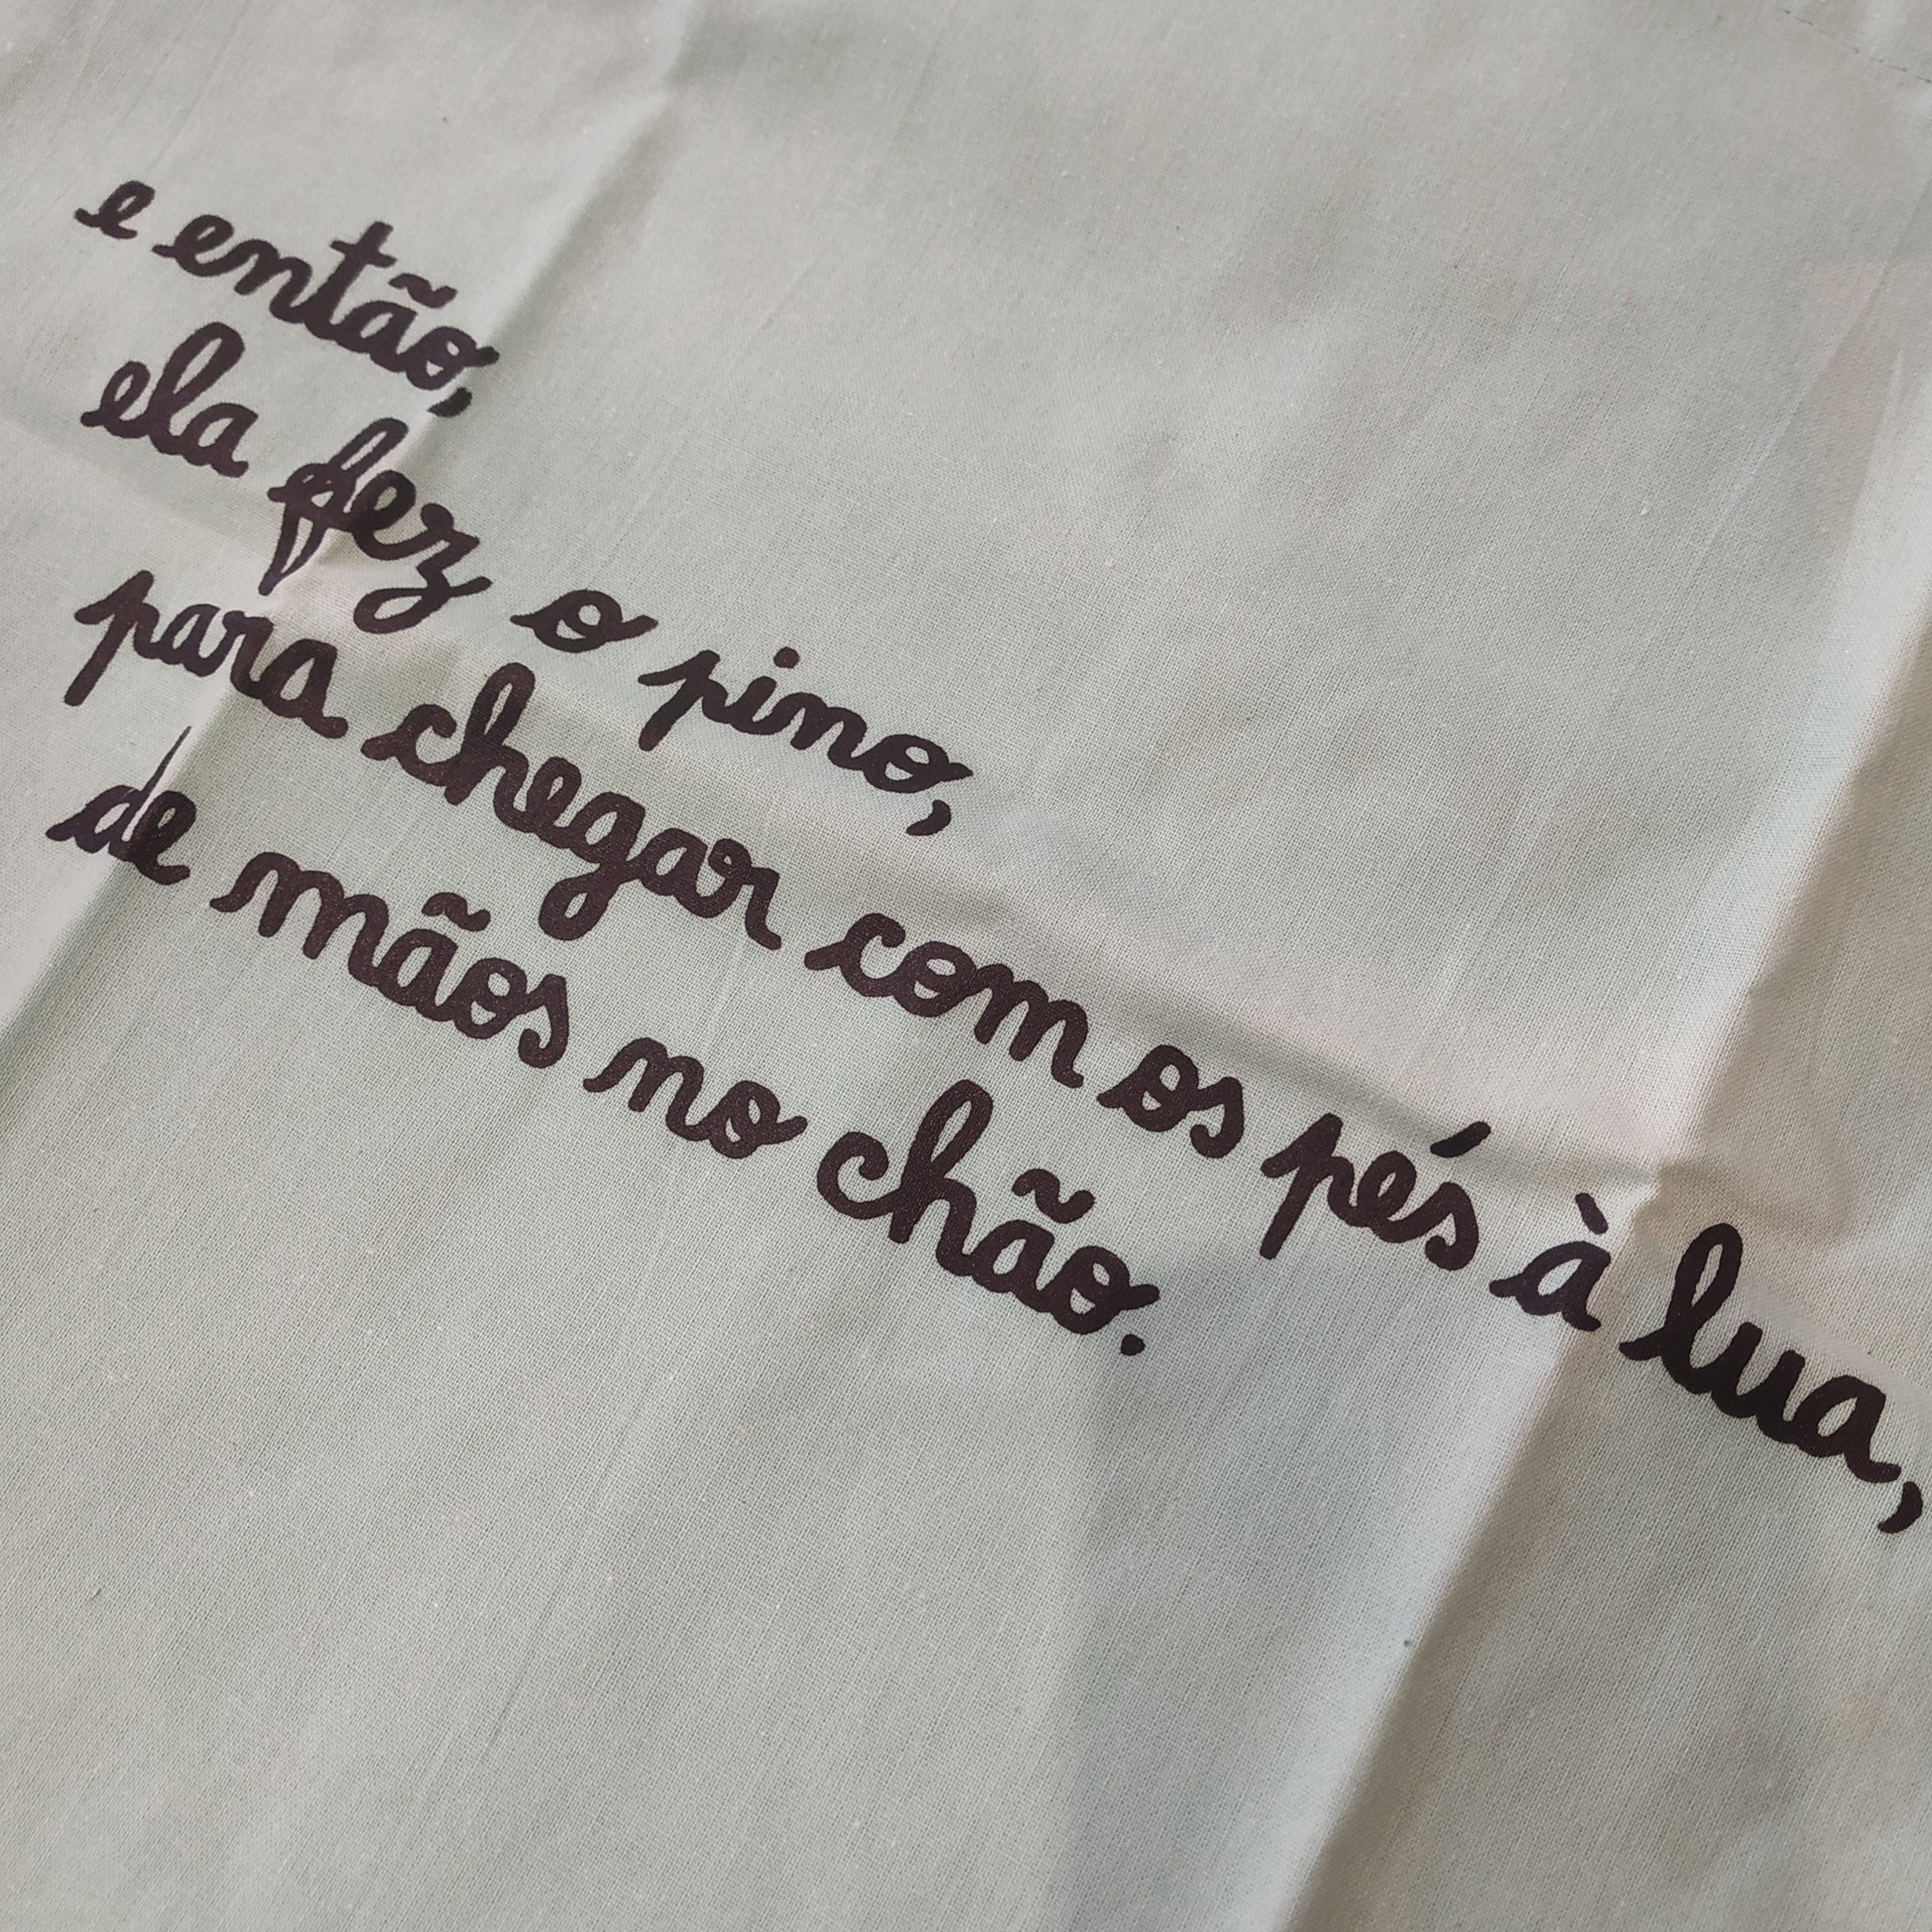 e então,
ela fez o pino,
para chegar com os pés à lua,
de mãos no chão.